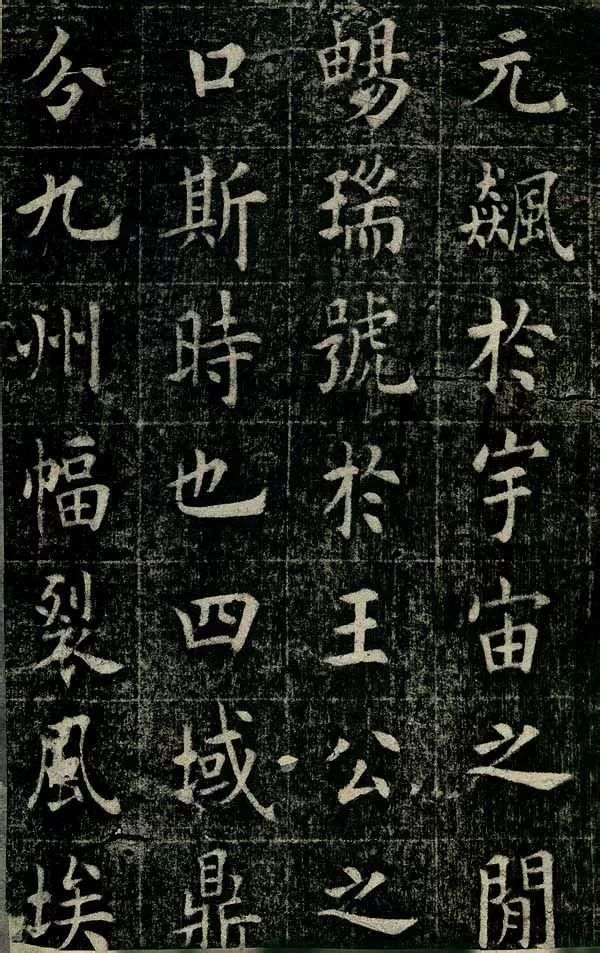 元飆於宇宙之閒
暢瑞號於王公之
口斯時也四域鼎
分九州幅裂風埃